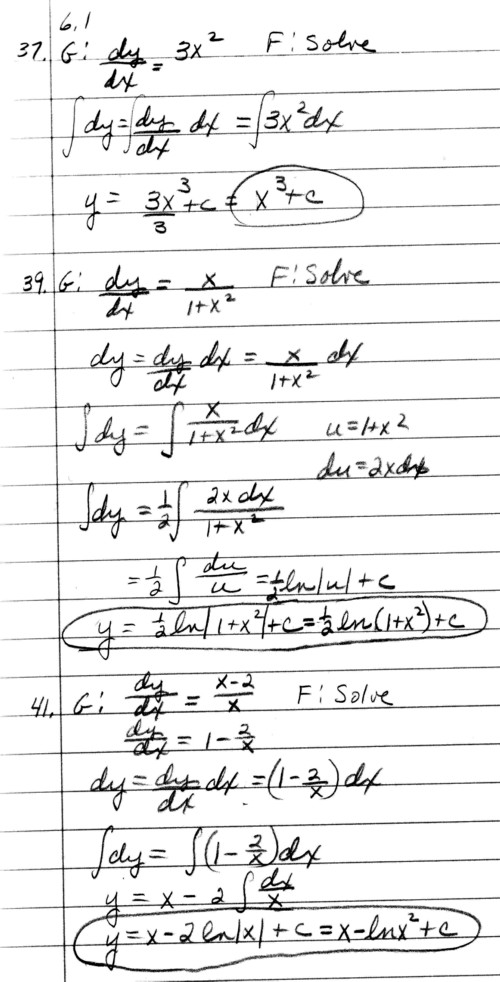 6.1
37. G: dy/dx = 3x² F: Solve
∫dy = ∫dy/dx dx = ∫3x²dx
y = 3x³/3 + c = x³ + c
39. G: dy/dx = x/1+x² F: Solve
dy = dy/dx dx = x/1+x² dx
∫dy = ∫x/1+x² dx u = 1+x²
du = 2xdx
∫dy = ½∫2x dx/1+x²
= ½∫du/u = ½ln|u| + c
y = ½ln|1+x²| + c = ½ln(1+x²) + c
41. G: dy/dx = x-2/x F: Solve
dy/dx = 1 - 2/x
dy = dy/dx dx = (1 - 2/x) dx
∫dy = ∫(1 - 2/x)dx
y = x - 2∫dx/x
y = x - 2ln|x| + c = x - lnx² + c